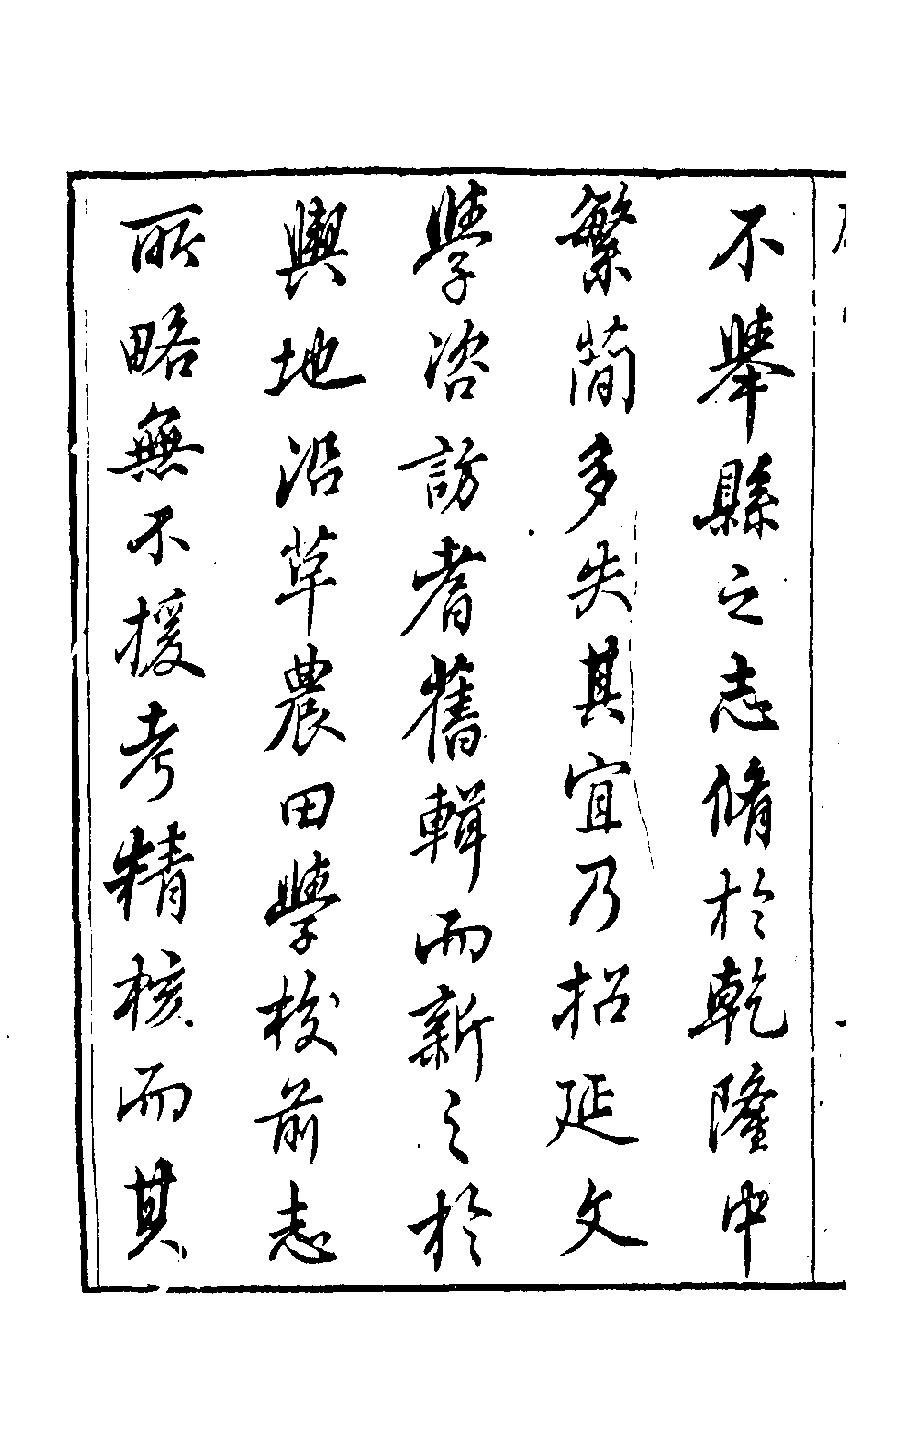 不舉縣之志脩於乾隆中
繁簡多失其宜乃招延文
學咨訪耆舊輯而新之於
輿地沿革農田學校前志
所略無不援考精核而其